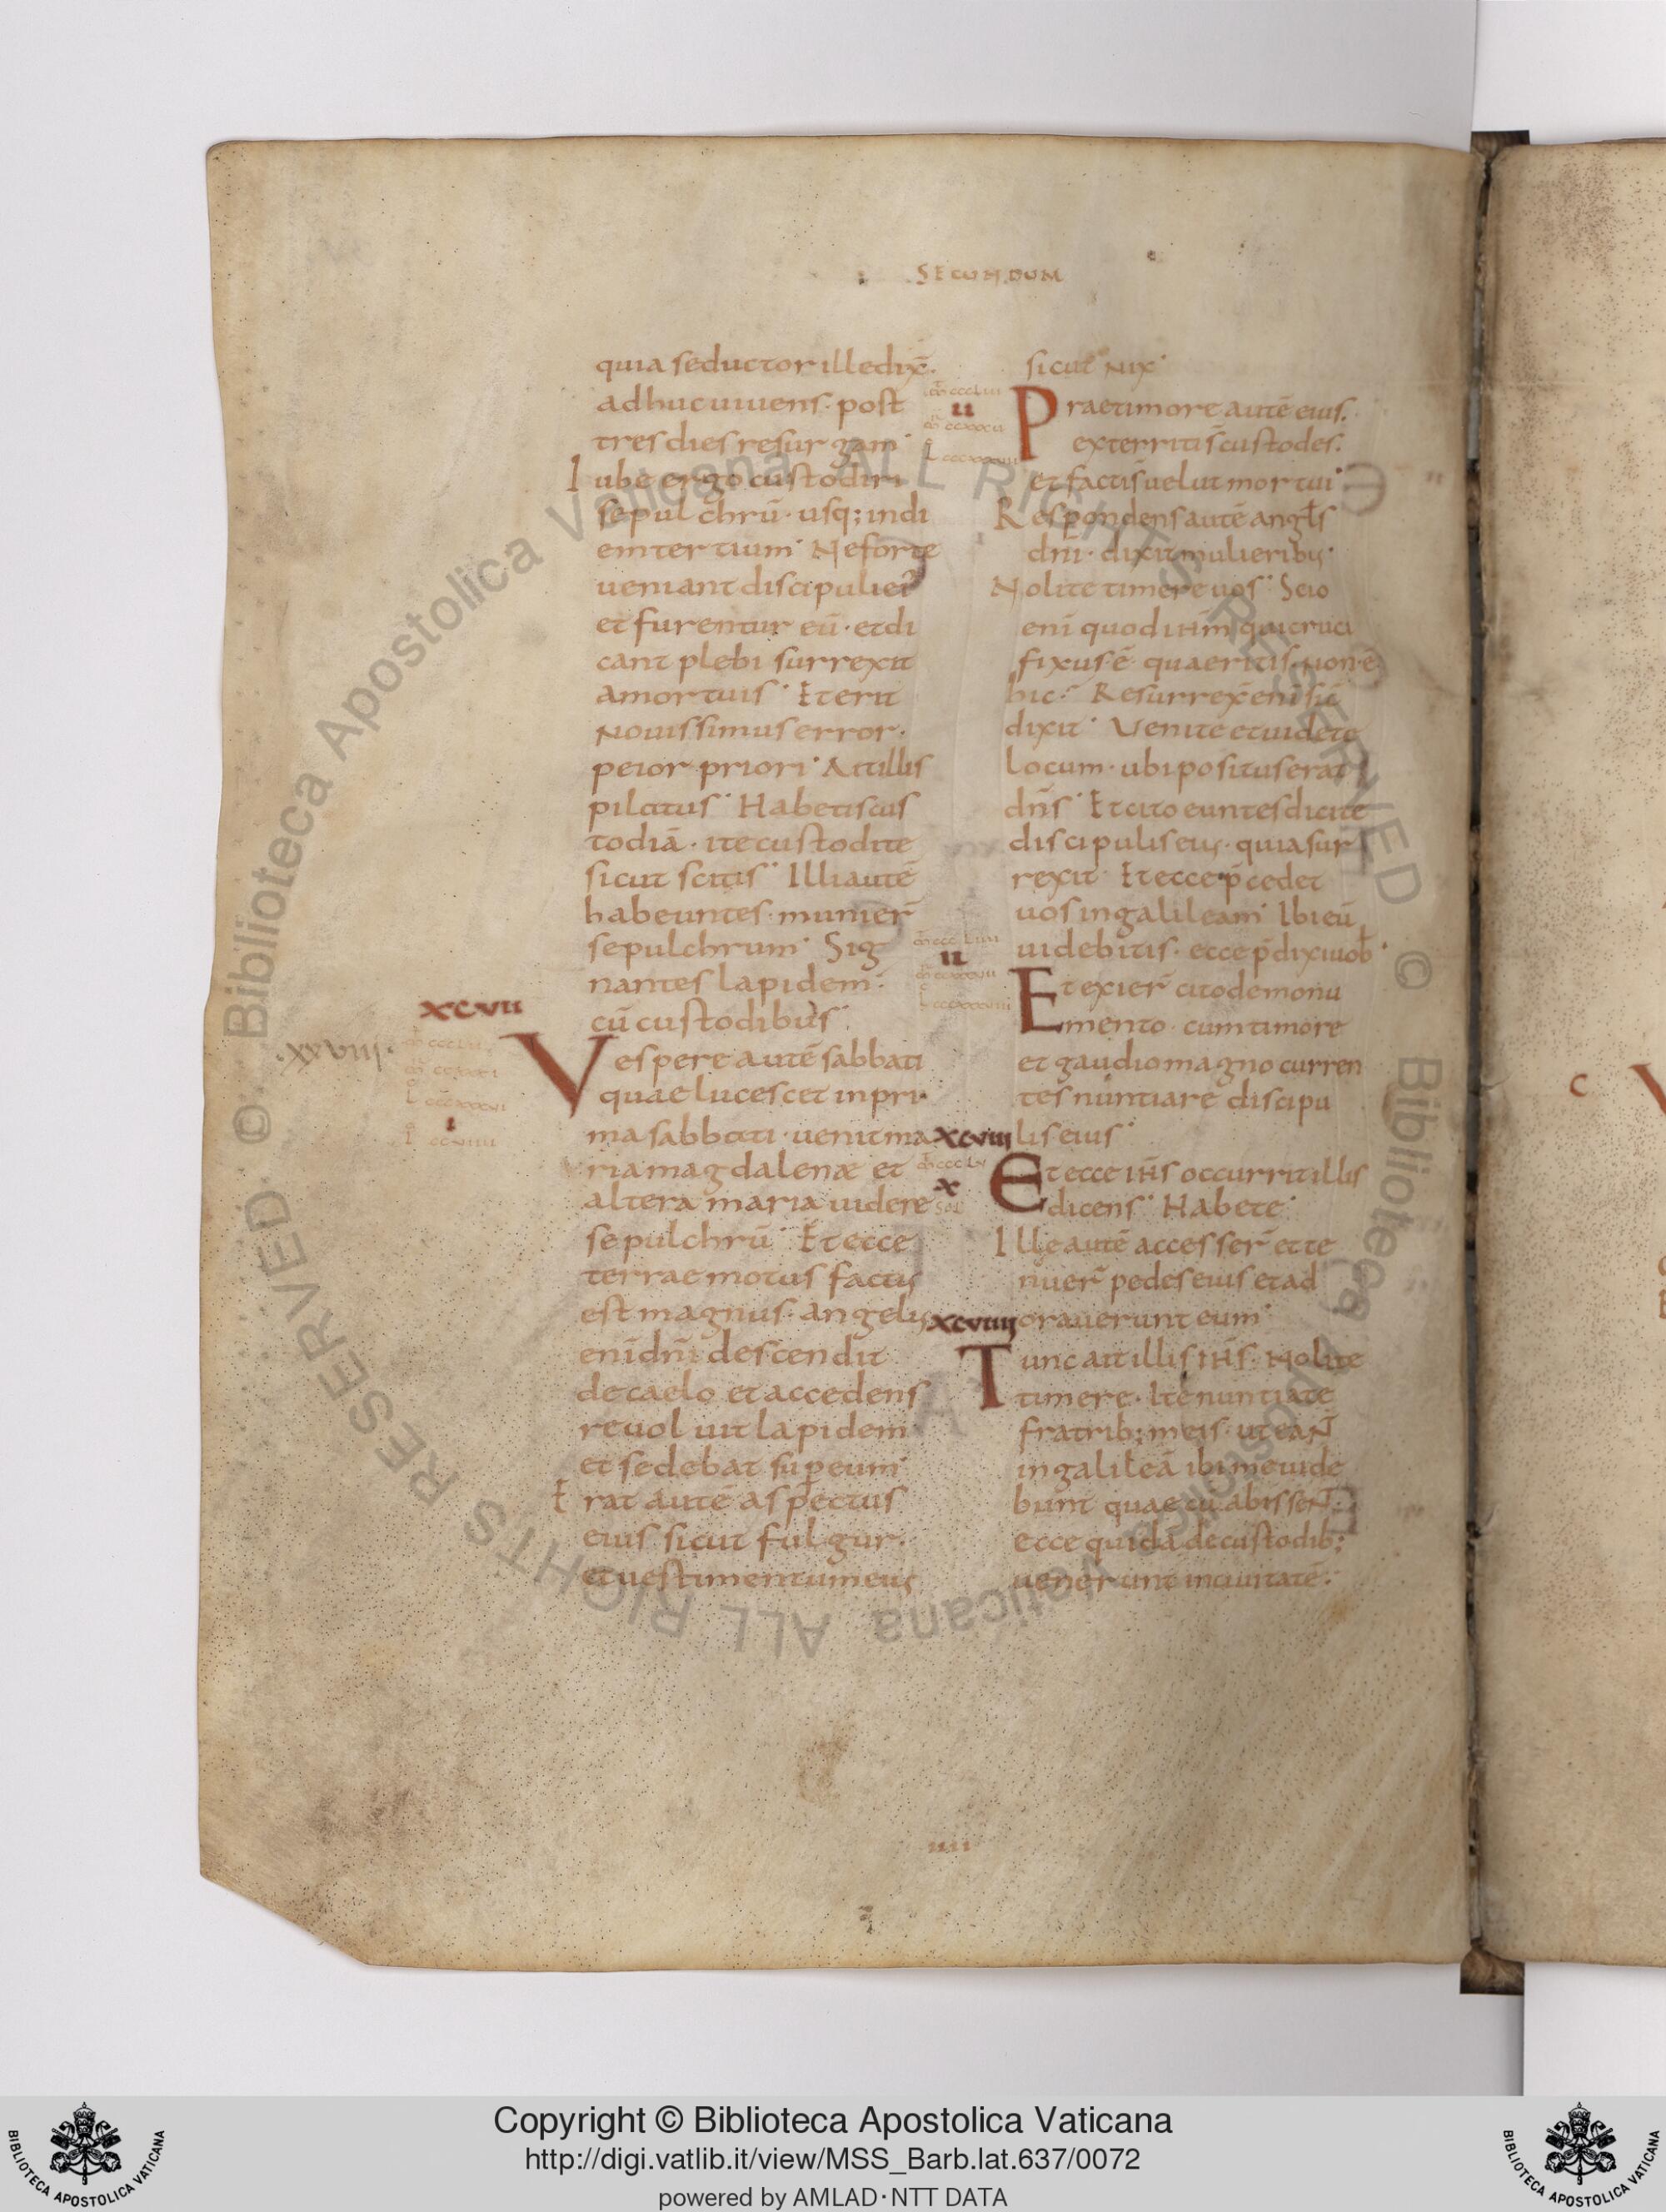 SECUNDUM
quia seductor ille dix̄.
adhuc uiuens· post
tres dies resurgam·
Iube ergo custodiri
sepulchrū· usq; indi
em tertium· Ne forte
ueniant discipuli ei᷒
et furentur eū· et di
cant plebi surrexit
a mortuis· Et erit
nouissimus error·
peior priori· Ait illis
pilatus· Habetis cus
todiā· ite custodite
sicut scitis· Illi autē
habeuntes· munier̄
sepulchrum· Sig
nantes lapidem·
cū custodibus·
XCVII
Vespere autē sabbati
quae lucescet in pri
ma sabbati· uenit ma
ria magdalenæ et
altera maria uidere
sepulchrū· Et ecce
terrae motus factus
est magnus· angelus
enī dn̄i descendit
de caelo et accedens
reuoluit lapidem
et sedebat sup̄ eum·
Erat autē aspectus
eius sicut fulgur·
et uestimentum eius
sicut nix·
II
Prae timore autē eius·
exterriti s̄ custodes·
et facti s̄ uelut mortui·
Respondens autē angl̄s
dn̄i· dixit mulierib;·
Nolite timere uos· Scio
enī quod ih̄m qui cruci
fixus ē· quaeritis· non ē
hic· Resurrex̄ enī sic̄
dixit· Venite et uidete
locum· ubi positus erat
dn̄s· Et cito euntes dicite
discipulis eius· quia sur
rexit· Et ecce p̄cedet
uos in galileam· Ibi eū
uidebitis· ecce p̄dixi uob̄·
II
Et exier̄ cito de monu
mento· cum timore
et gaudio magno curren
tes nuntiare discipu
XCVIII
lis eius·
X
Et ecce ih̄s occurrit illis
dicens· Habete·
Ille autē accesser̄ et te
nuer̄ pedes eius et ad
XCVIIII
orauerunt eum·
Tunc ait illis ih̄s· Nolite
timere· Ite nuntiate
fratrib; meis· ut ean̄
in galileā ibi me uide
bunt quae cū abissen̄·
ecce quidā de custodib;
uenerunt in ciuitatē·
IIII
Copyright © Biblioteca Apostolica Vaticana
http://digi.vatlib.it/view/MSS_Barb.lat.637/0072
powered by AMLAD·NTT DATA